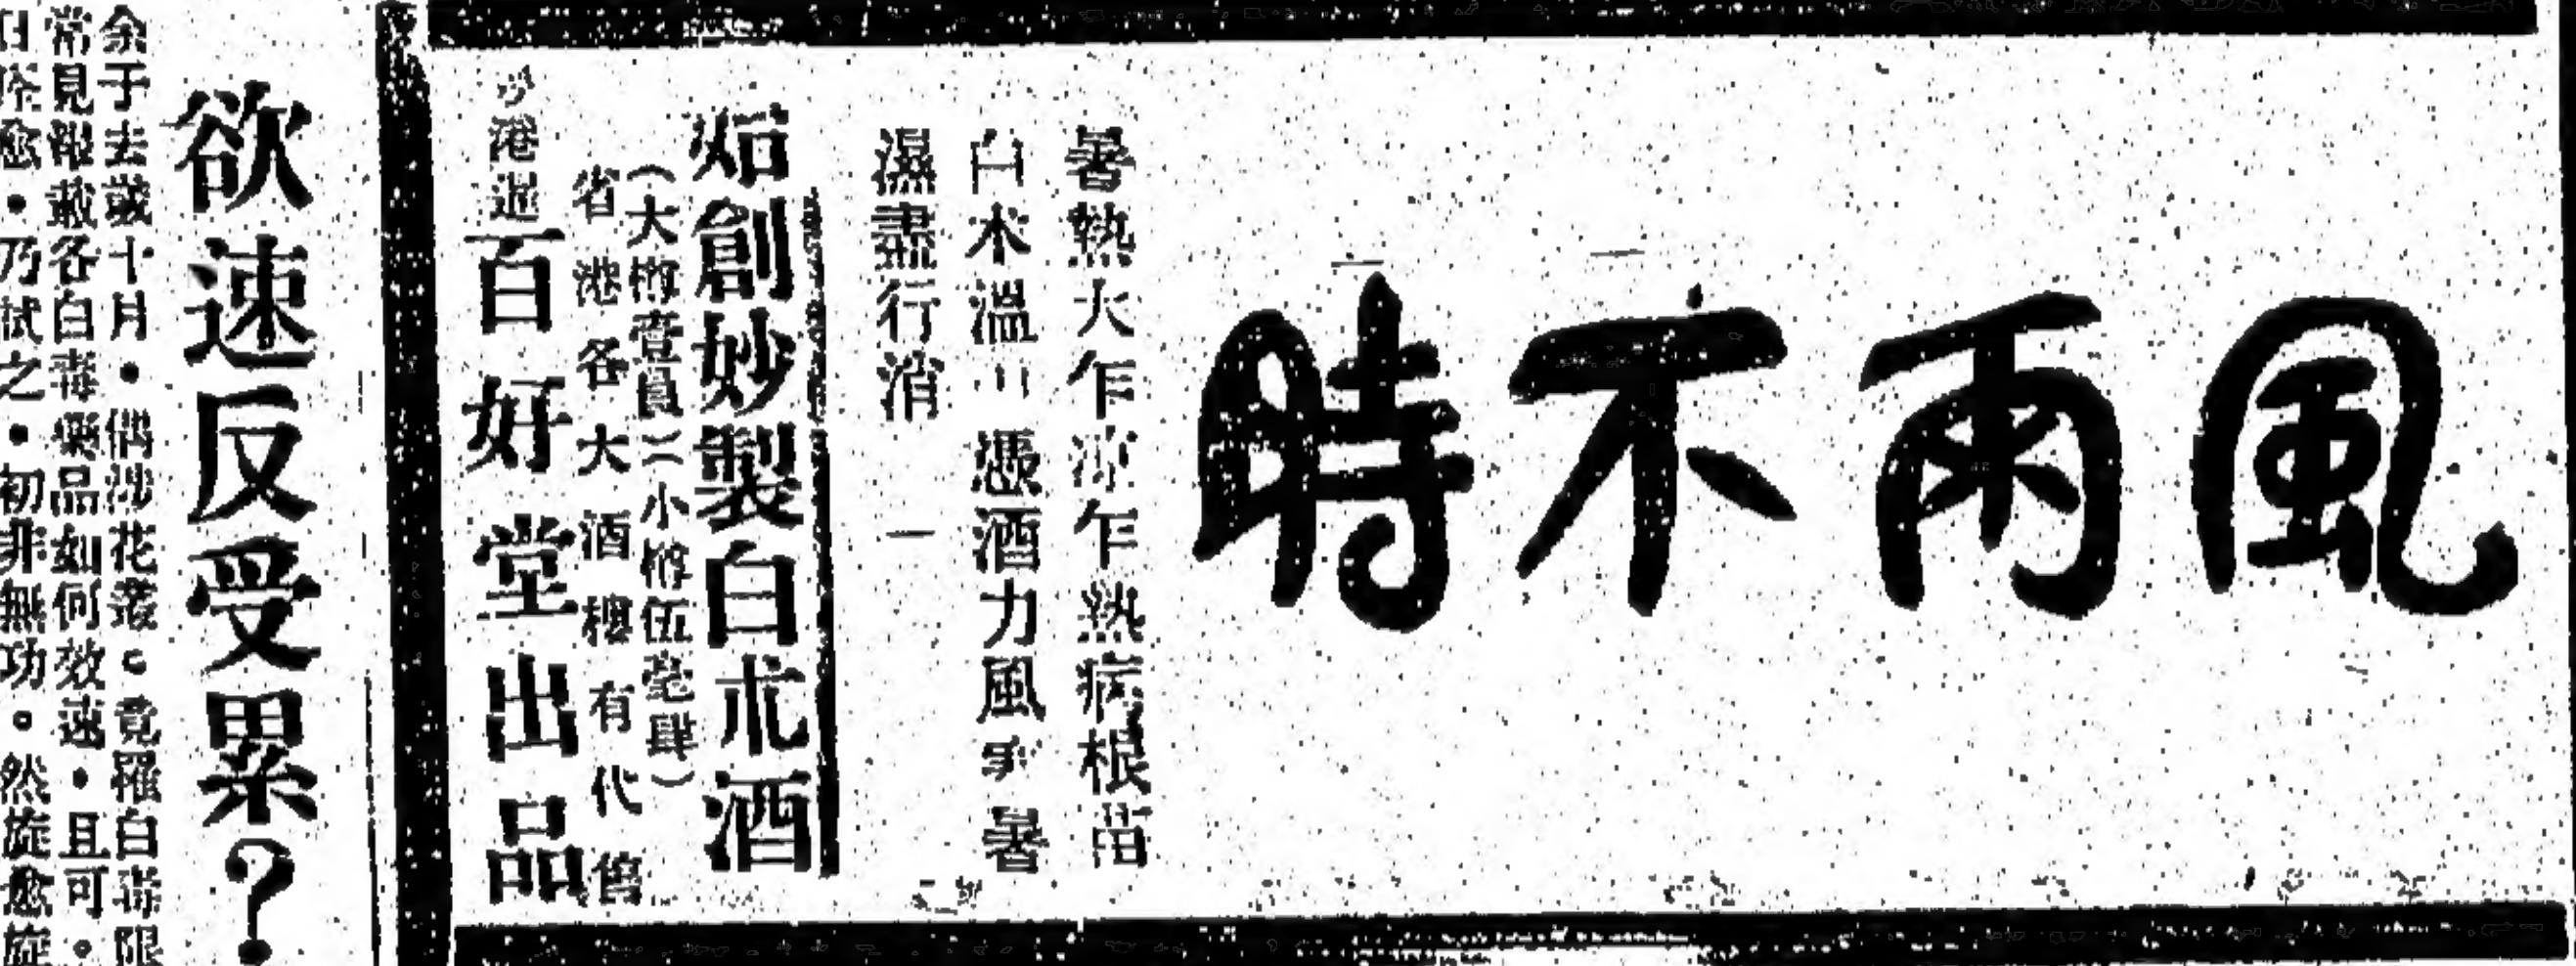 風雨不時
暑熱火乍涼乍熱病根苗
白朮溫 憑酒力風 暑
濕盡行消
始創妙製白朮酒
(大樽壹員二小樽伍毫肆)
省港各大酒樓有代售
港 百好堂出品
欲速反受累?
余于去歲十月・偶涉花叢。竟罹白毒限
常見報載各白毒藥品如何效速・且可。
愈・乃試之・初非無功。然旋愈旋